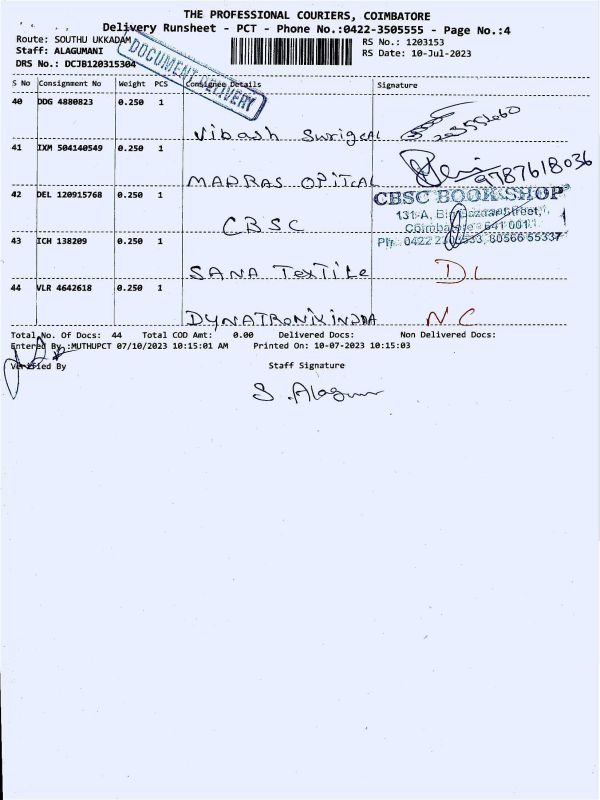 THE PROFESSIONAL COURIERS, COIMBATORE
Delivery Runsheet - PCT - Phone No.:0422-3505555 - Page No.:4
Route: SOUTHU UKKADAM
RS No.: 1203153
Staff: ALAGUMANI
RS Date: 10-Jul-2023
DRS No.: DCJB120315304
DOCUMENT DELIVERY
S No Consignment No Weight PCS Consignee Details Signature
40 DDG 4880823 0.250 1
Vibash Surigcal
41 IXM 504140549 0.250 1
9787618036
MADRAS OPITCAL
42 DEL 120915768 0.250 1
CBSC BOOK SHOP
131-A, Street,
CBSC
Coimbatore 641 001.
43 ICH 138209 0.250 1
Ph: 0422 80566 55337
SANA TexTiLe DL
44 VLR 4642618 0.250 1
DYNATRONIX INDRA NC
Total No. Of Docs: 44 Total COD Amt: 0.00 Delivered Docs: Non Delivered Docs:
Entered By :MUTHUPCT 07/10/2023 10:15:01 AM Printed On: 10-07-2023 10:15:03
Verified By Staff Signature
S. Alagum